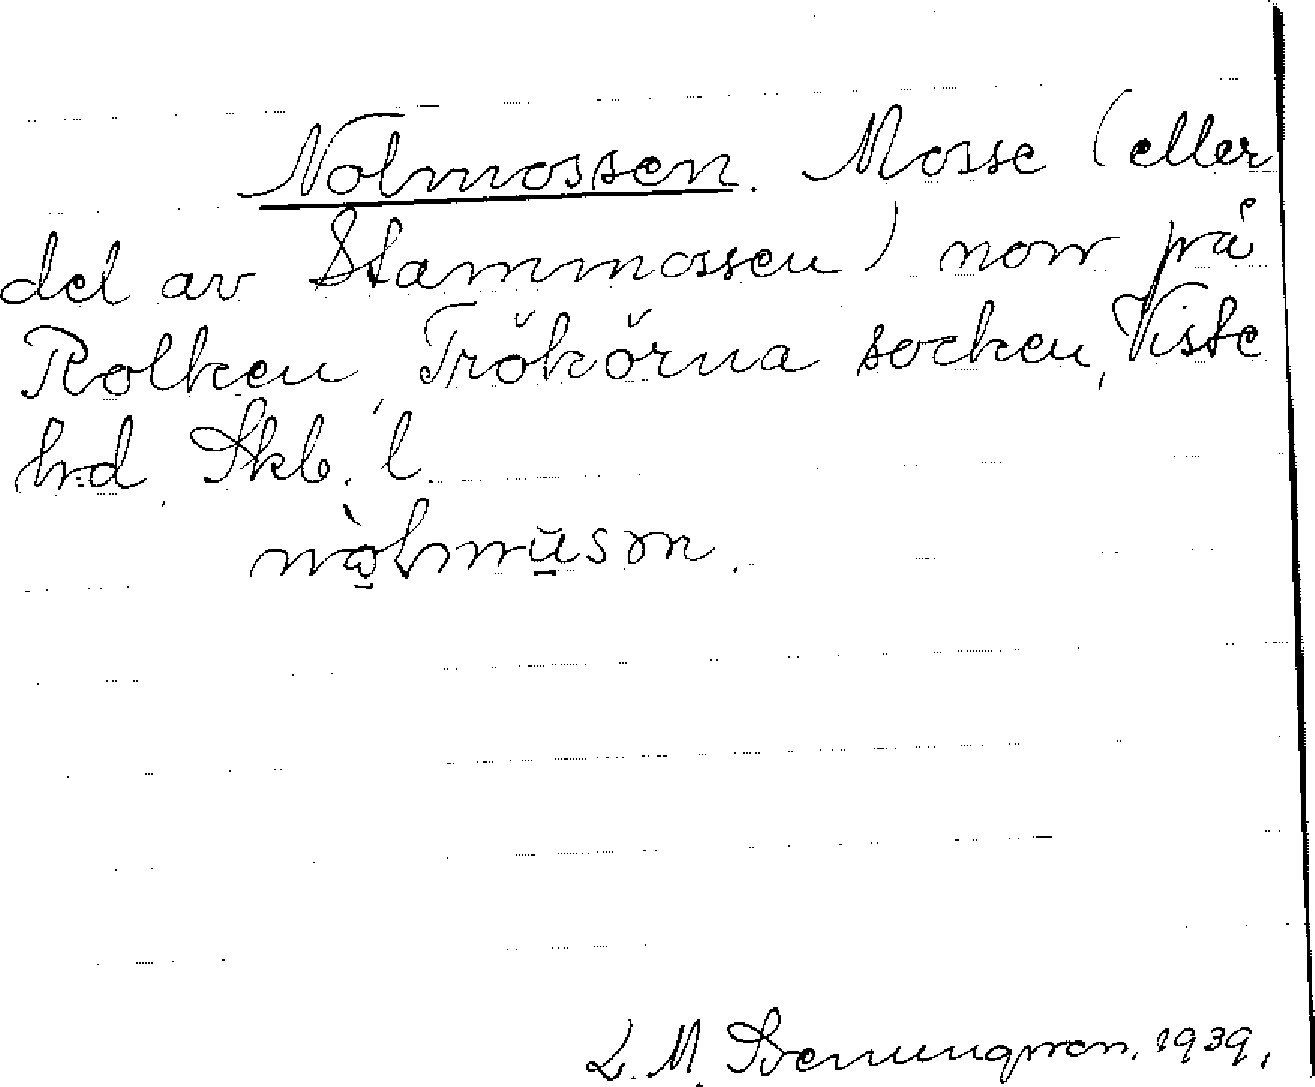 Nolmossen. Mosse (eller
del av Stammossen) norr på
Rolken, Trökörna socken, Viste
hd, Skb. l.
L. M. Svenungsson. 1939.